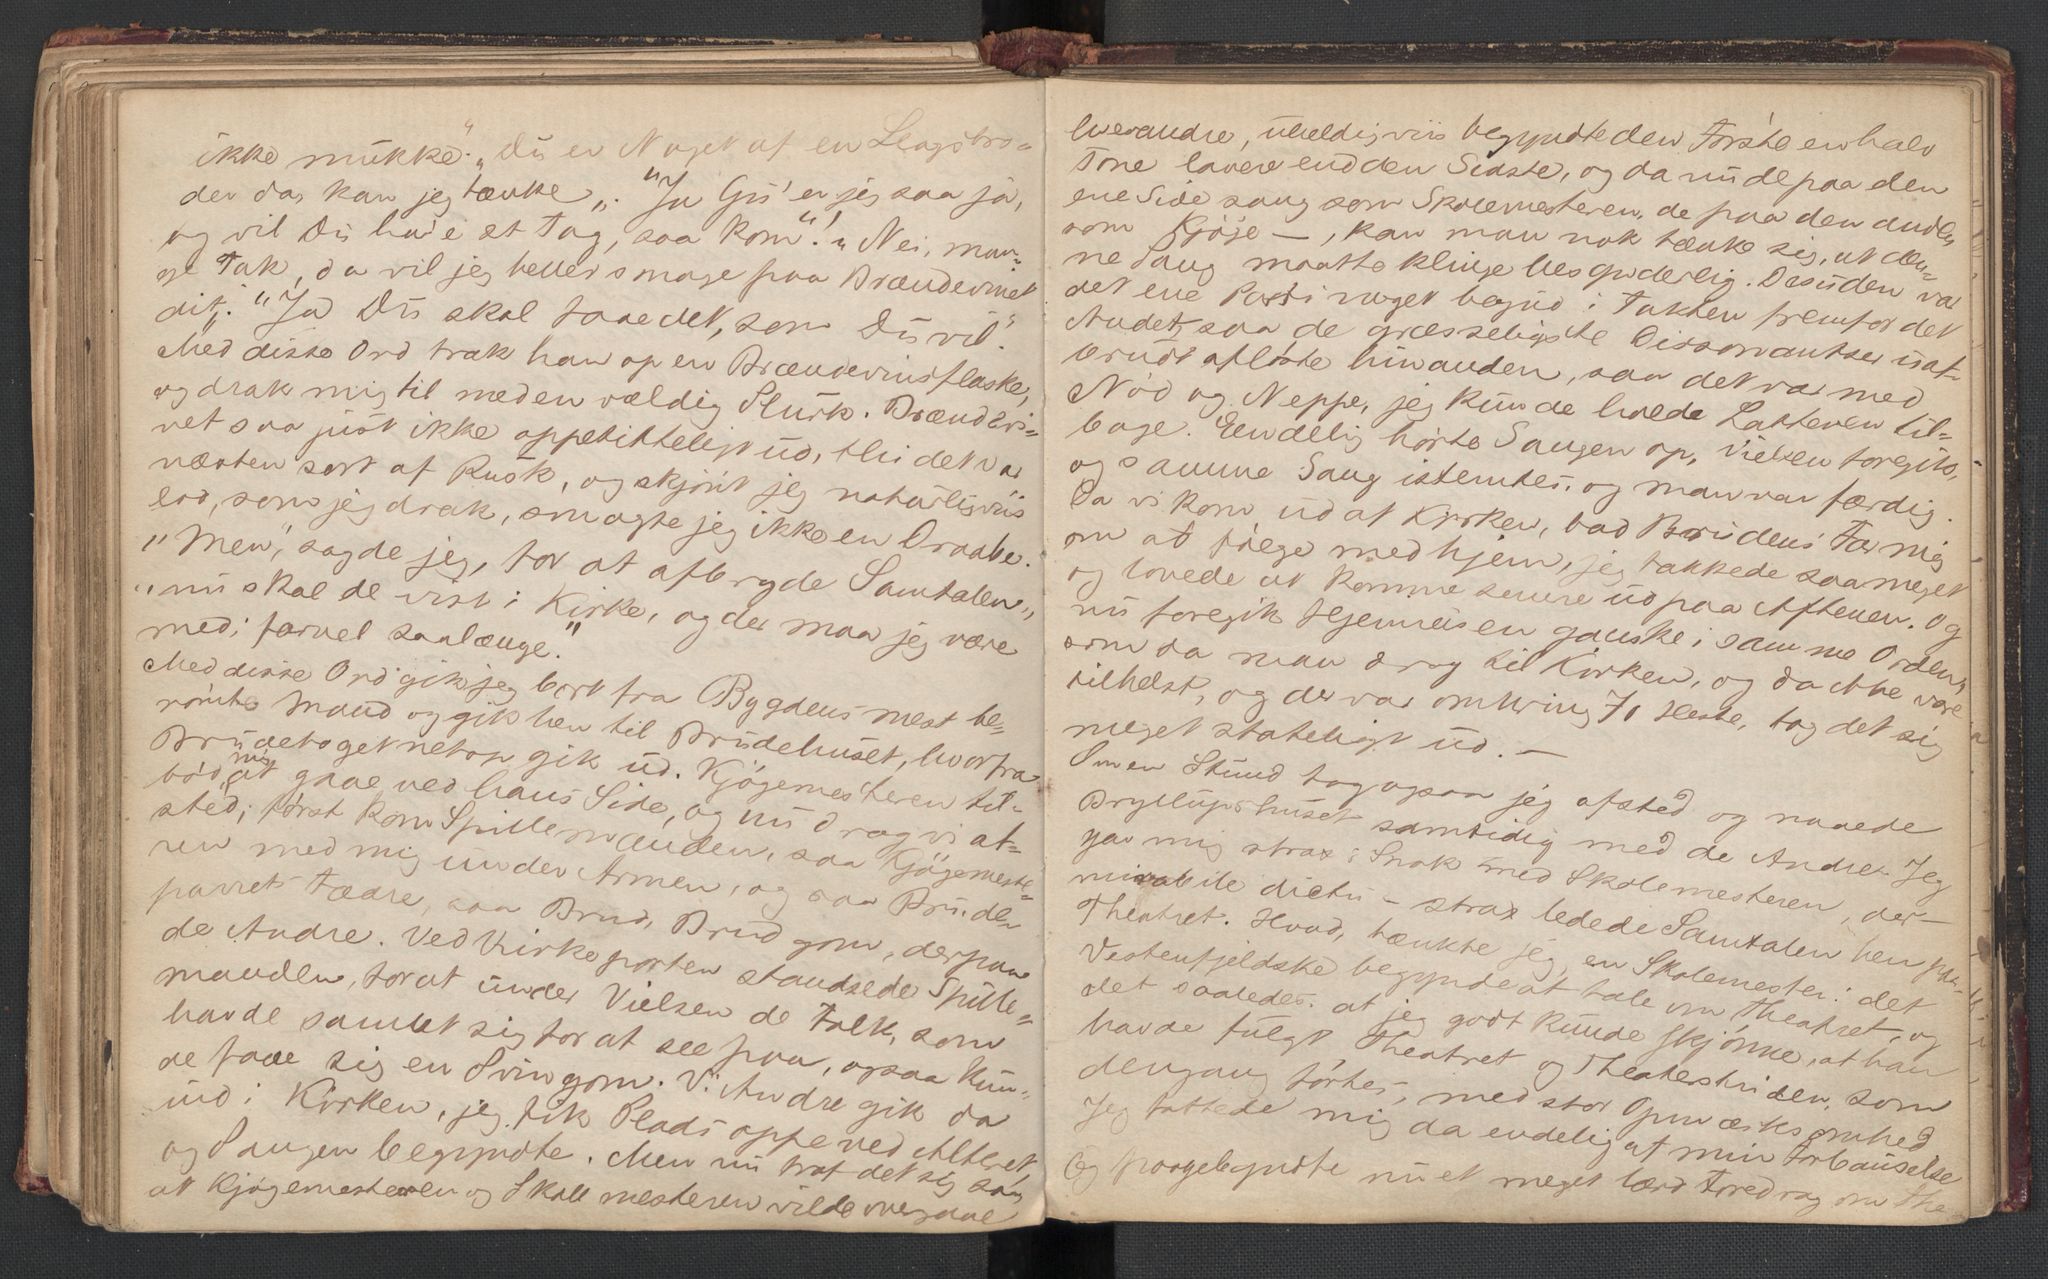 ikke mukke". "Du er Noget af en Slagsbro-
der da, kan jeg tænke". "Ja Gu' er jeg saa ja,
og vil Du ha'e et Tag, saa kom"! "Nei, man-
ge Tak, da vil jeg heller smage paa Brændevinet
dit". "Ja Du skal faae det, som Du vil."
Med disse Ord trak han op en Brændevinsflaske,
og drak mig til med en vældig Slurk. Brændevi-
net saa just ikke appetitteligt ud, thi det var
næsten sort af Rusk, og skjønt jeg naturligviis
lod, som jeg drak, smagte jeg ikke en Draabe.
"Men", sagde jeg, for at afbryde Samtalen,
"nu skal de vist i Kirke, og der maa jeg være
med; farvel saalænge."
Med disse Ord gik jeg bort fra Bygdens mest be-
rømte Mand og gik hen til Brudehuset, hvorfra
Brudetoget netop gik ud. Kjøgemesteren til-
bød mig at gaae ved hans Side, og nu drog vi af-
sted; først kom Spillemanden, saa Kjøgemeste-
ren med mig under Armen, og saa Brude-
parrets Fædre, saa Brud, Brudgom, derpaa
de Andre. Ved Kirkeporten standsede Spille-
manden, for at under Vielsen de Folk, som
havde samlet sig for at see paa, ogsaa kun-
de faae sig en Svingom. Vi Andre gik da
ind i Kirken, jeg fik Plads oppe ved Alteret,
og Sangen begyndte. Men nu traf det sig saa,
at Kjøgemesteren og Skolemesteren vilde overgaae
hverandre, uheldigviis begyndte den Første en halv
Tone lavere end den Sidste, og da nu de paa den
ene Side sang som Skolemesteren, de paa den anden
som Kjøje—, kan man nok tænke sig, at den-
ne Sang maatte klinge besynderlig. Desuden var
det ene Parti noget bagud i Takten fremfor det
Andet, saa de græsseligste Dissonantser uaf-
brudt afløste hinanden, saa det var med
Nød og Neppe, jeg kunde holde Latteren til-
bage. Eendelig hørte Sangen op, Vielsen foregik,
og samme Sang istemtes, og man var færdig.
Da vi kom ud af Kirken, bad Brudens Far mig
om at følge med hjem, jeg takkede saameget
og lovede at komme senere ud paa Aftenen. Og
nu foregik Hjemreisen ganske i samme Orden,
som da man drog til Kirken, og da Alle vare
tilhest, og der var omkring 70 Heste, tog det sig
meget stateligt ud. —
Om en Stund tog ogsaa jeg afsted og naaede
Bryllupshuset samtidig med de Andre. Jeg
gav mig strax i Snak med Skolemesteren, der —
mirabile dictu — strax ledede Samtalen hen paa
Theatret. Hvad, tænkte jeg, en Skolemester i det
Vestenfjeldske begynde at tale om Theatret, og
det saaledes, at jeg godt kunde skjønne, at han
havde fulgt Theatret og Theaterstriden, som
dengang førtes, med stor Opmærksomhed
Jeg fattede mig da endelig af min Forbauselse
og paagebyndte nu et meget lærd Foredrag om The